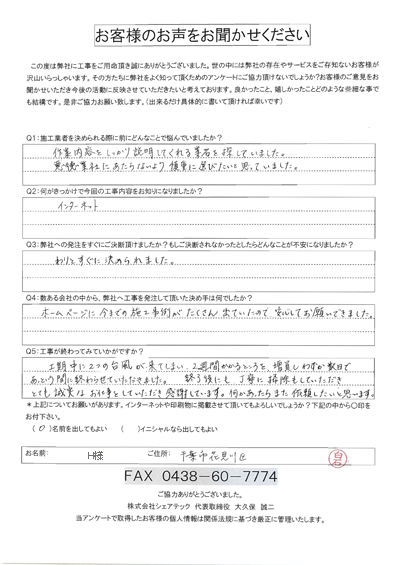 お客様のお声をお聞かせください
この度は弊社に工事をご用命頂き誠にありがとうございました。世の中には弊社の存在やサービスをご存知ないお客様が
沢山いらっしゃいます。その方たちに弊社をよく知って頂くためのアンケートにご協力頂けないでしょうか?お客様のご意見をお
聞かせいただき今後の活動に反映させていただきたいと考えております。良かったこと、嬉しかったことどのような些細な事で
も結構です。是非ご協力お願い致します。(出来るだけ具体的に書いて頂ければ幸いです)
Q1:施工業者を決められる際に前にどんなことで悩んでいましたか?
作業内容をしっかり説明してくれる業者を探していました。
悪徳業社にあたらないよう慎重に選びたいと思っていました。
Q2:何がきっかけで今回の工事内容をお知りになりましたか?
インターネット
Q3:弊社への発注をすぐにご決断頂けますか?もしご決断されなかったとしたらどんなことが不安になりましたか?
わりとすぐに決められました。
Q4:数ある会社の中から、弊社へ工事を発注して頂いた決め手は何でしたか?
ホームページに今までの施工事例がたくさん出ていたので安心してお願いできました。
Q5:工事が終わってみていかがですか?
工期中に2つの台風が来てしまい、2週間かかるところを、増員しわずか数日で
あっという間に終わらせていただきました。終了後にも丁寧に掃除もしていただき
とても誠実なお仕事をしていただき感謝しています。何かあったらまた依頼したいと思います。
*上記についてお願いがあります。インターネットや印刷物に掲載させて頂いてもよろしいでしょうか?下記の中から〇印を
お付下さい。
(〇)名前を出してもよい (  )イニシャルなら出してもよい
お名前: H様 ご住所: 千葉市花見川区
白岩
FAX 0438-60-7774
ご協力ありがとうございました。
株式会社シェアテック 代表取締役 大久保 誠二
当アンケートで取得したお客様の個人情報は関係法規に基づき厳正に管理いたします。